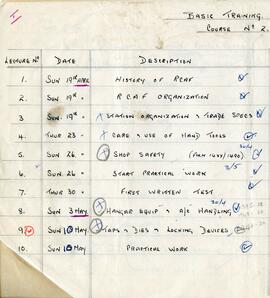 BASIC TRAINING.
COURSE Nº 2.
LECTURE Nº DATE DESCRIPTION
1. SUN 19th APRIL HISTORY OF RCAF
2. SUN 19th " RCAF ORGANIZATION
3. SUN. 19th " STATION ORGANIZATION & TRADE SPECS
4. THUR 23 - CARE & USE OF HAND TOOLS
30/4
5. SUN 26. SHOP SAFETY (FILM
3/5
6. SUN 26 - START PRACTICAL WORK
7. THUR 30 FIRST WRITTEN TEST
30/4
8. SUN 3 MAY HANGAR EQUIP & A/C HANDLING
9. SUN 10 MAY TAPS & DIES & LOCKING DEVICES
10. SUN 10 MAY PRACTICAL WORK